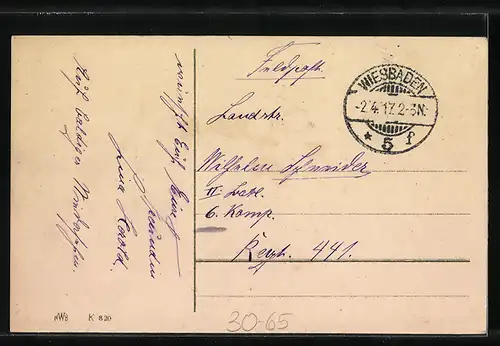 wünscht Euch Eure
Freundin
Lina
Auf baldiges Wiedersehen.
Feldpost.
Landstr.
Wilhelm Schneider
II Batl.
6. Komp.
Regt. 441.
WIESBADEN
-2.4.17.2-3N.
* 5 f
MWB K 820
30-65